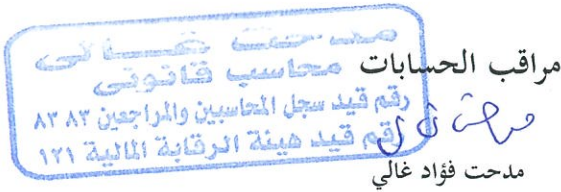 مراقب الحسابات
مدحت غالى
محاسب قانونى
رقم قيد سجل المحاسبين والمراجعين ٨٣٨٣
رقم قيد هيئة الرقابة المالية ١٢١
مدحت فؤاد غالي